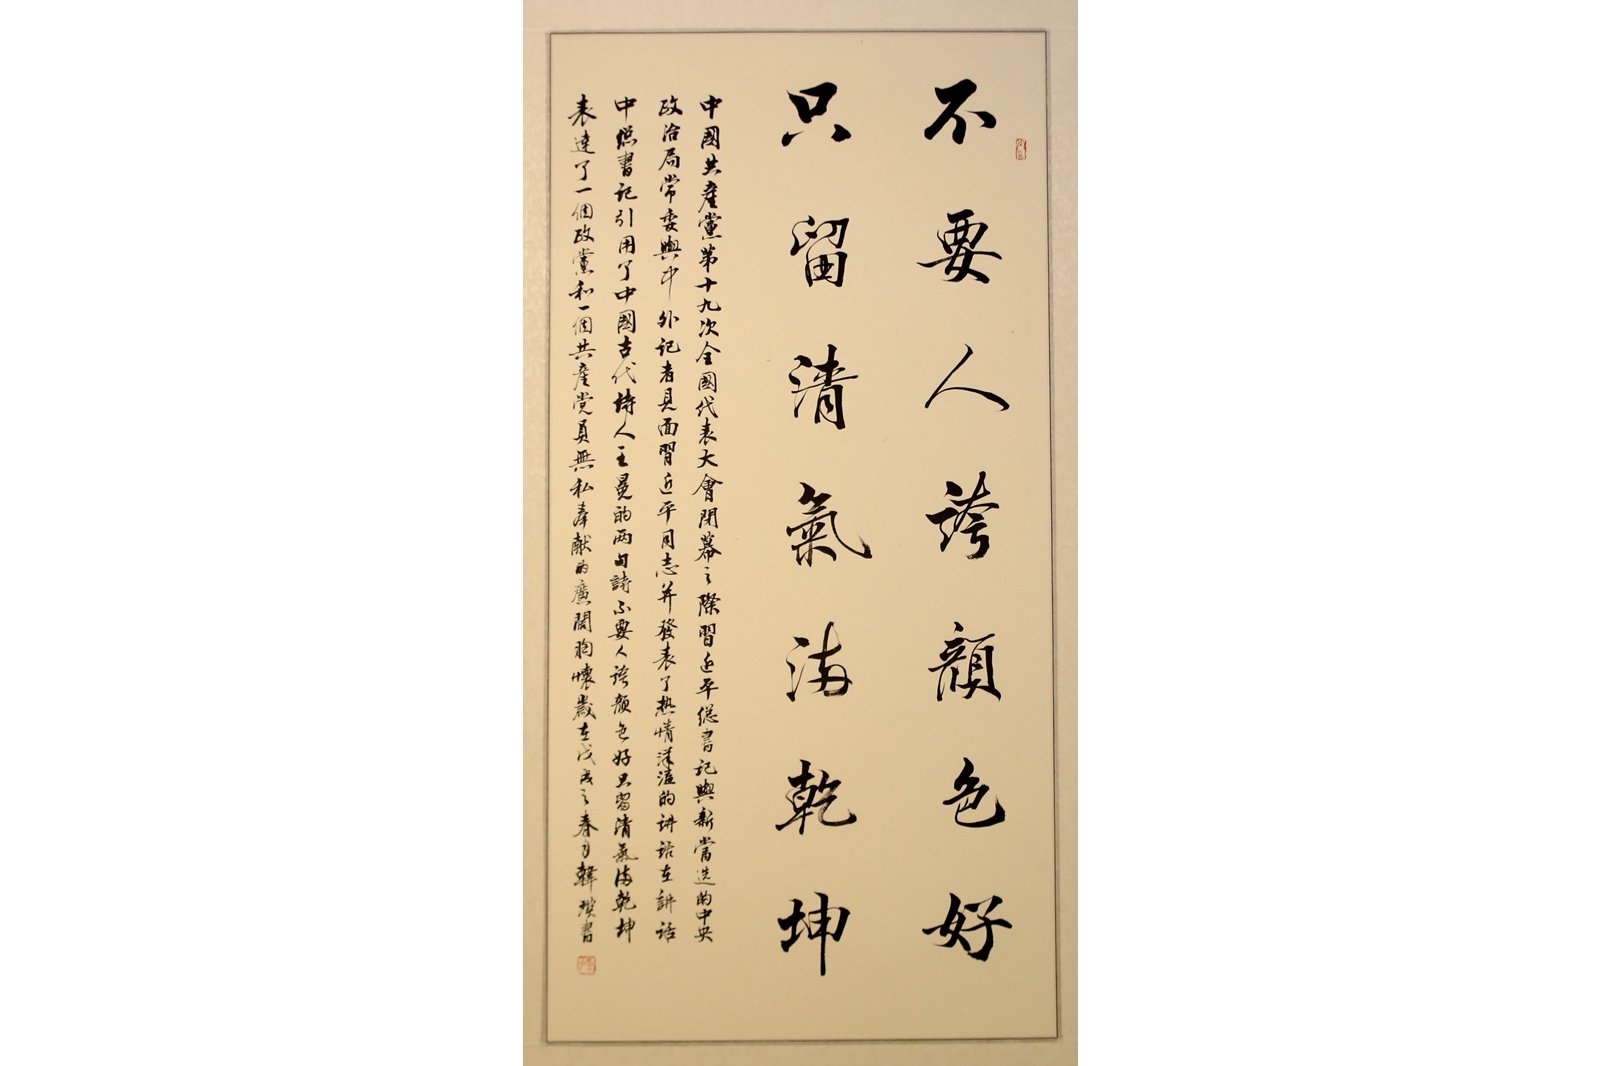 不要人誇顔色好
只留清氣満乾坤
中國共產黨第十九次全國代表大會閉幕之際習近平總書記與新當选的中央
政治局常委與中外记者見面習近平同志并發表了热情洋溢的讲話在講話
中總書记引用了中國古代詩人王冕的两句詩不要人誇颜色好只留清氣満乾坤
表達了一個政黨和一個共產党員無私奉献的廣闊胸懷歲在戊戌之春月韓書